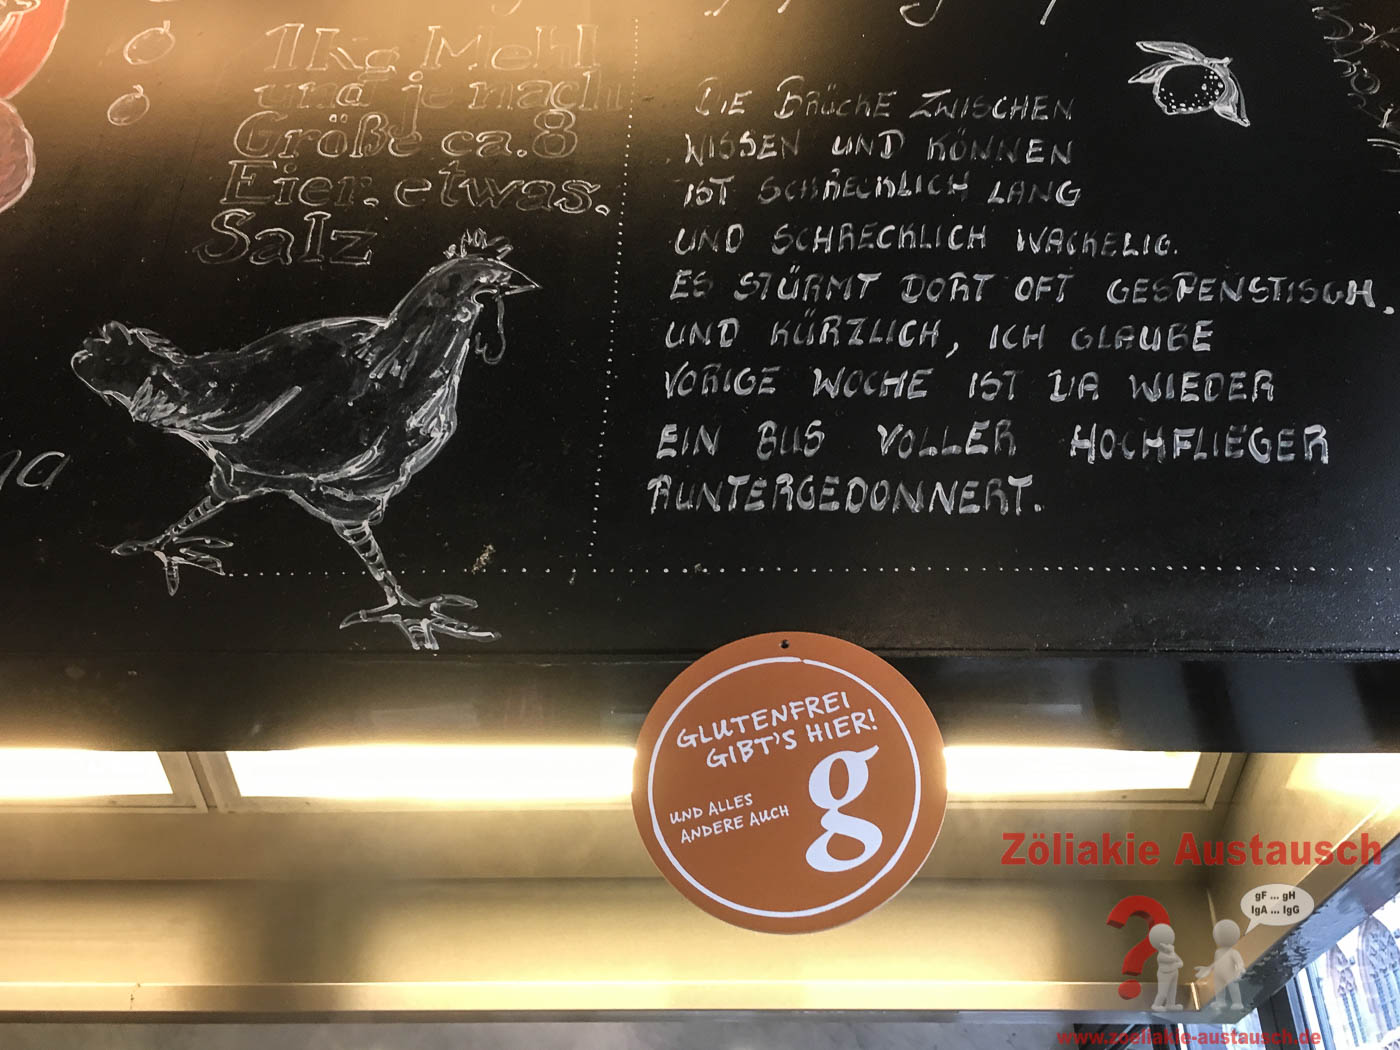 1Kg Mehl
und je nach
Größe ca. 8
Eier. etwas.
Salz
DIE BRÜCKE ZWISCHEN
WISSEN UND KÖNNEN
IST SCHRECKLICH LANG
UND SCHRECKLICH WACKELIG.
ES STÜRMT DORT OFT GESPENSTISCH,
UND KÜRZLICH, ICH GLAUBE
VORIGE WOCHE IST DA WIEDER
EIN BUS VOLLER HOCHFLIEGER
RUNTERGEDONNERT.
GLUTENFREI
GIBT'S HIER!
g
UND ALLES
ANDERE AUCH
Zöliakie Austausch
gF ... gH
IgA ... IgG
?
www.zoeliakie-austausch.de